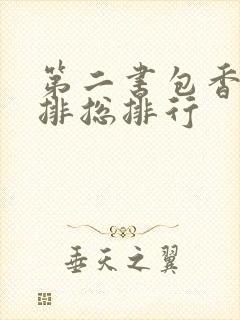 第二书包香
排总排行
垂天之翼